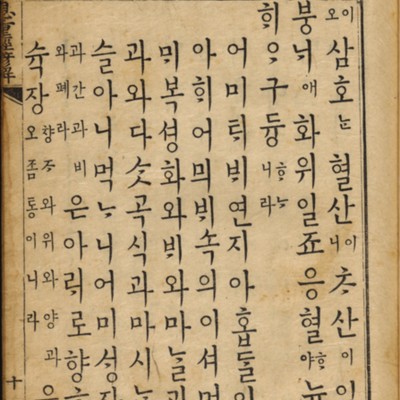 이오
삼호ᄂᆞᆫ혈산이니초산이
붕닉애화위일죠응혈ᄒᆞ야뉴
ᄒᆡᄋᆞ구듕ᄒᆞᄂᆞ니라
어미ᄐᆡᄇᆡ연지아홉ᄃᆞᆯ이
아ᄒᆡ어믜ᄇᆡ속의이셔며
믜복셩화와ᄇᆡ와마ᄂᆞᆯ과
과와다ᄉᆞᆺ곡식과마시ᄂᆞᆫ
슬아니먹ᄂᆞ니어미셩장
과간과비와폐라은아ᄅᆡ로향ᄒᆞ
슉장향ᄌᆞ와위와양과오좀통이니라
十